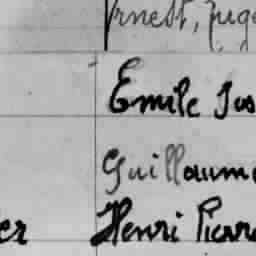 Ernest, Euge
Emile Jus
Guillaume
er Henri Pierre